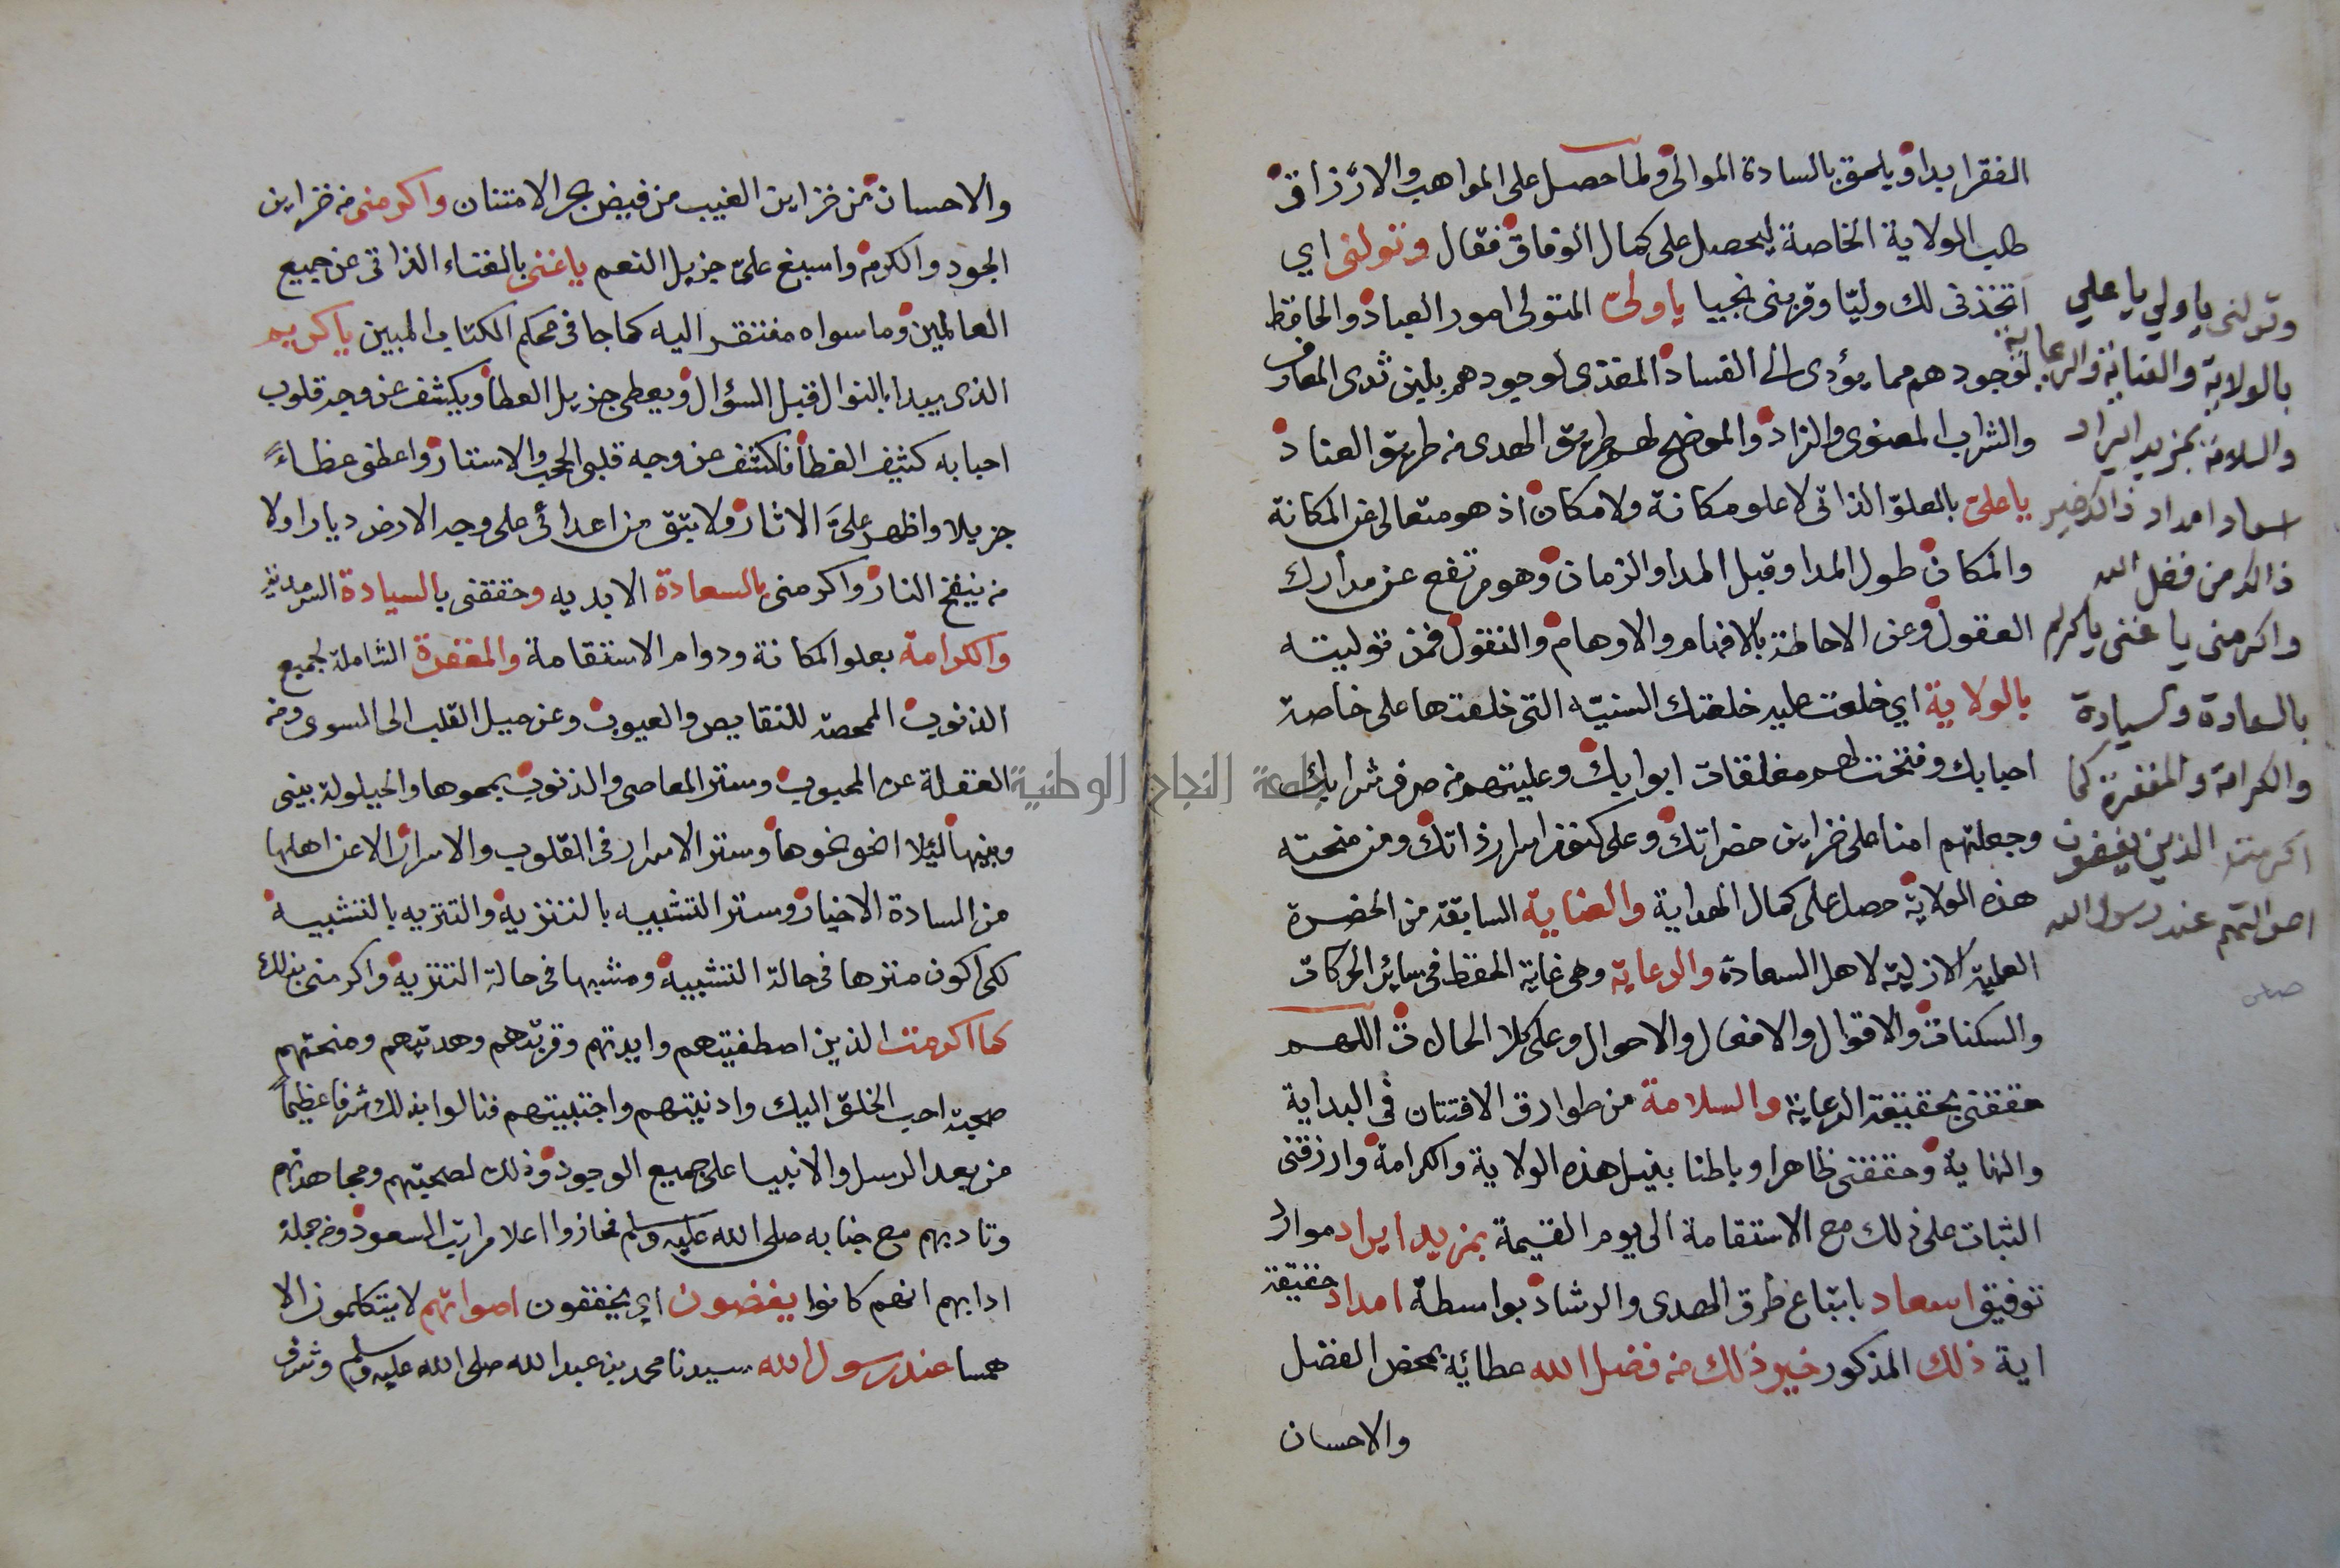 الفقرا يدا ويلحق بالسادة الموالى ولما حصل على المواهب والارزاق
طلب الولاية الخاصة ليحصل على كمال الوفاق فقال وتولنى اي
اتخذنى لك وليّا وقربنى نجيا يا ولىّ المتولى امور العباد والحافظ
لوجودهم مما يؤدى الى الفساد المغذى لوجودهم بلبن ثدى المعارف
والشراب المعنوى والزاد والموضح لهم طريق الهدى من طريق العناد
يا علىّ بالعلوّ الذاتى لا علو مكانة ولا مكان اذ هو متعالى عن المكانة
والمكان طول المدا وقبل المدا والزمان وهو مرتفع عن مدارك
العقول وعن الاحاطة بالافهام والاوهام والنقول فمن توليته
بالولاية اي خلعت عليه خلعتك السنيّه التى خلعتها على خاصة
احبابك وفتحت لهم مغلقات ابوابك وعليتهم من صرف شرابك
وجعلتهم امنا على خزاين حضراتك وعلى كنوز اسرار ذاتك ومن منحته
هذه الولاية حصل على كمال الهداية والعناية السابقة من الحضرة
العلمية الازلية لاهل السعادة والرعاية وهى غاية الحفظ فى سائر الحركات
والسكنات والاقوال والافعال والاحوال وعلى كلا الحالات اللهم
حققنى بحقيقة الرعاية والسلامة من طوارق الافتتان فى البداية
والنهاية وحققنى ظاهرا وباطنا بنيل هذه الولاية والكرامة وارزقنى
الثبات على ذلك مع الاستقامة الى يوم القيمة بمزيد ايراد موارد
توفيق اسعاد باتباع طرق الهدى والرشاد بواسطة امداد حقيقة
اية ذلك المذكور خير ذلك من فضل الله عطائه بمحض الفضل
والاحسان
وتولنى يا ولي يا علي
بالولاية والعناية والرعاية
والسلامة بمزيد ايراد
اسعاد امداد ذالك خير
ذالك من فضل الله
واكرمنى يا غنى يا كريم
بالسعادة والسيادة
والكرامة والمغفرة كما
اكرمت الذين يغضون
اصواتهم عند رسول الله
والاحسان من خزاين الغيب من فيض بحر الامتنان واكرمنى من خزاين
الجود والكرم واسبغ علىّ جزيل النعم يا غنى بالغناء الذاتى عن جميع
العالمين وما سواه مفتقر اليه كما جا فى محكم الكتاب المبين يا كريم
الذى يبدا بالنوال قبل السؤال ويعطى جزيل العطا ويكشف عن وجه قلوب
احبابه كثيف الغطا فاكشف عن وجه قلبى الحجب والاستار واعطنى عطاءً
جزيلا واظهر علىّ الاثار ولا يتق من اعدائى على وجه الارض ديارا ولا
من ينفخ النار واكرمنى بالسعادة الابديه وحققنى بالسيادة السرمدية
والكرامة بعلو المكانة ودوام الاستقامة والمغفرة الشاملة لجميع
الذنوب الممحصة للنقايص والعيوب وعن ميل القلب الى السوى ومن
الغفلة عن المحبوب وستر المعاصى والذنوب بمحوها والحيلولة بينى
وبينها لئلا انحو نحوها وستر الاسرار فى القلوب والاسرار الا عن اهلها
من السادة الاخيار وستر التشبيه بالتنزيه والتنزيه بالتشبيه
لكى اكون منزها فى حالة التشبيه ومشبها فى حالة التنزيه واكرمنى بذلك
كما اكرمت الذين اصطفيتهم وايدتهم وقربتهم وهديتهم ومنحتهم
صحبة احب الخلق اليك وادنيتهم واجتبيتهم فنالوا بذلك شرفا عظيماً
من بعد الرسل والانبيا على جميع الوجود وذلك لصحبتهم ومجاهدتهم
وتادبهم مع جنابه صلى الله عليه وسلم فحازوا اعلا مراتب السعود ومن جملة
ادابهم انهم كانوا يغضون اي يخفضون اصواتهم لا يتكلمون الا
همسا عند رسول الله سيدنا محمد بن عبد الله صلى الله عليه وسلم وشرف
جامعة النجاح الوطنية